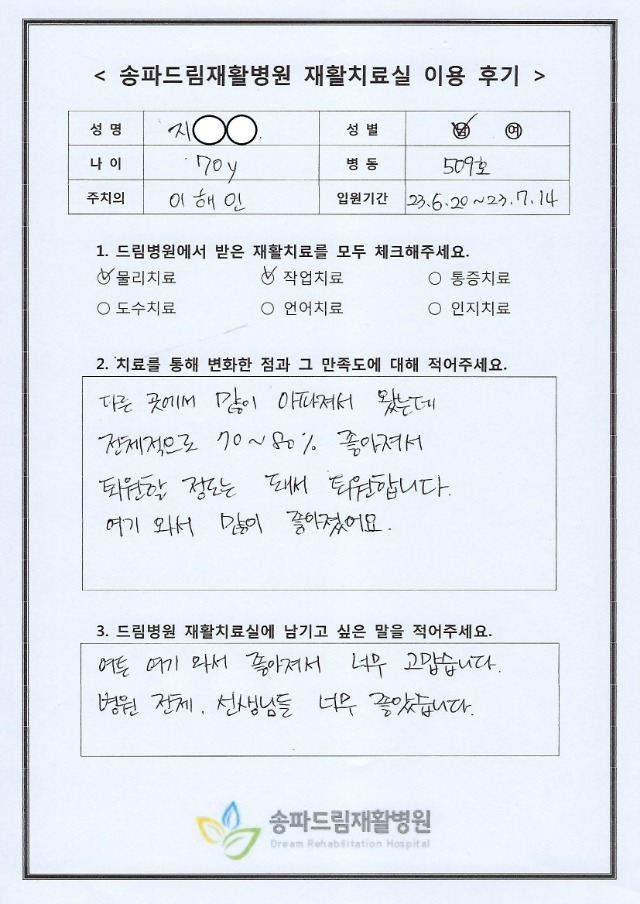 < 송파드림재활병원 재활치료실 이용 후기 >
성 명 지○○. 성 별 남 여
나 이 70y 병 동 509호
주치의 이해인 입원기간 23.6.20~23.7.14
1. 드림병원에서 받은 재활치료를 모두 체크해주세요.
물리치료 작업치료 통증치료
도수치료 언어치료 인지치료
2. 치료를 통해 변화한 점과 그 만족도에 대해 적어주세요.
다른 곳에서 많이 아파져서 왔는데
전체적으로 70~80% 좋아져서
퇴원할 정도는 돼서 퇴원합니다.
여기 와서 많이 좋아졌어요.
3. 드림병원 재활치료실에 남기고 싶은 말을 적어주세요.
여튼 여기 와서 좋아져서 너무 고맙습니다.
병원 전체, 선생님들 너무 좋았습니다.
송파드림재활병원
Dream Rehabilitation Hospital